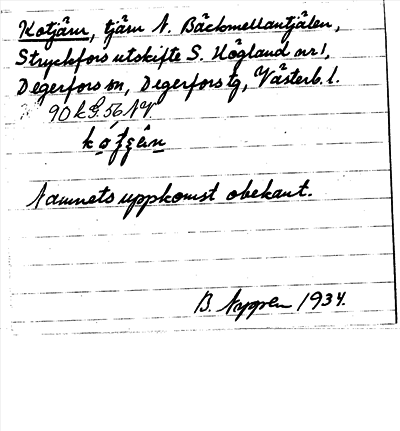 Kotjärn, tjärn N. Bäckmellantjälen,
Stryckfors utskifte S. Högland nr 1,
Degerfors sn, Degerfors tg, Västerb. l.
90 k G. 56 NV
Namnets uppkomst obekant.
B. Nygren 1934.